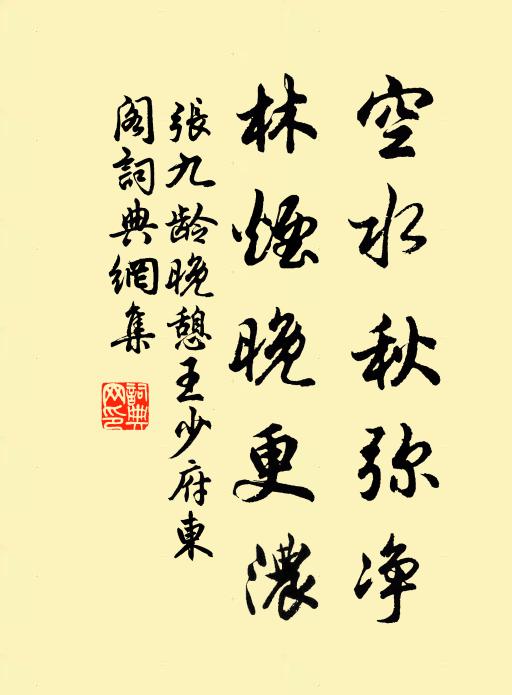 空水秋弥净
林煙晚更濃
張九龄晚憩王少府東
阁詞典網集
詞典网印